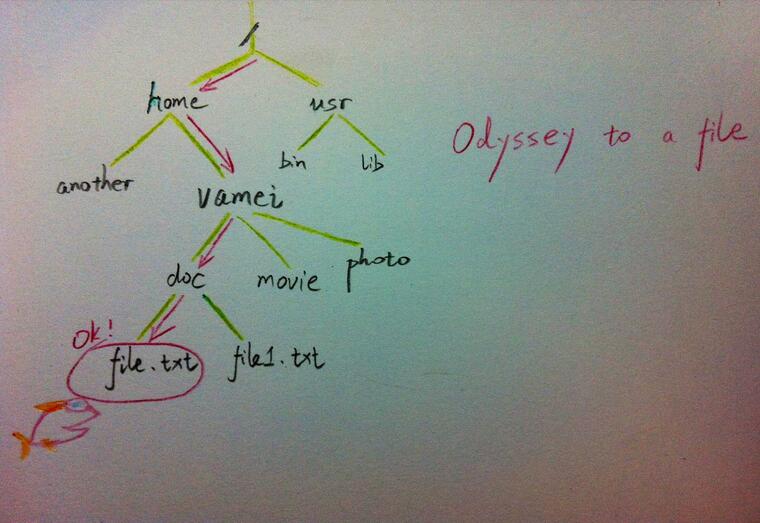 /
home usr
Odyssey to a file
another bin lib
vamei
doc movie photo
Ok!
file.txt file1.txt